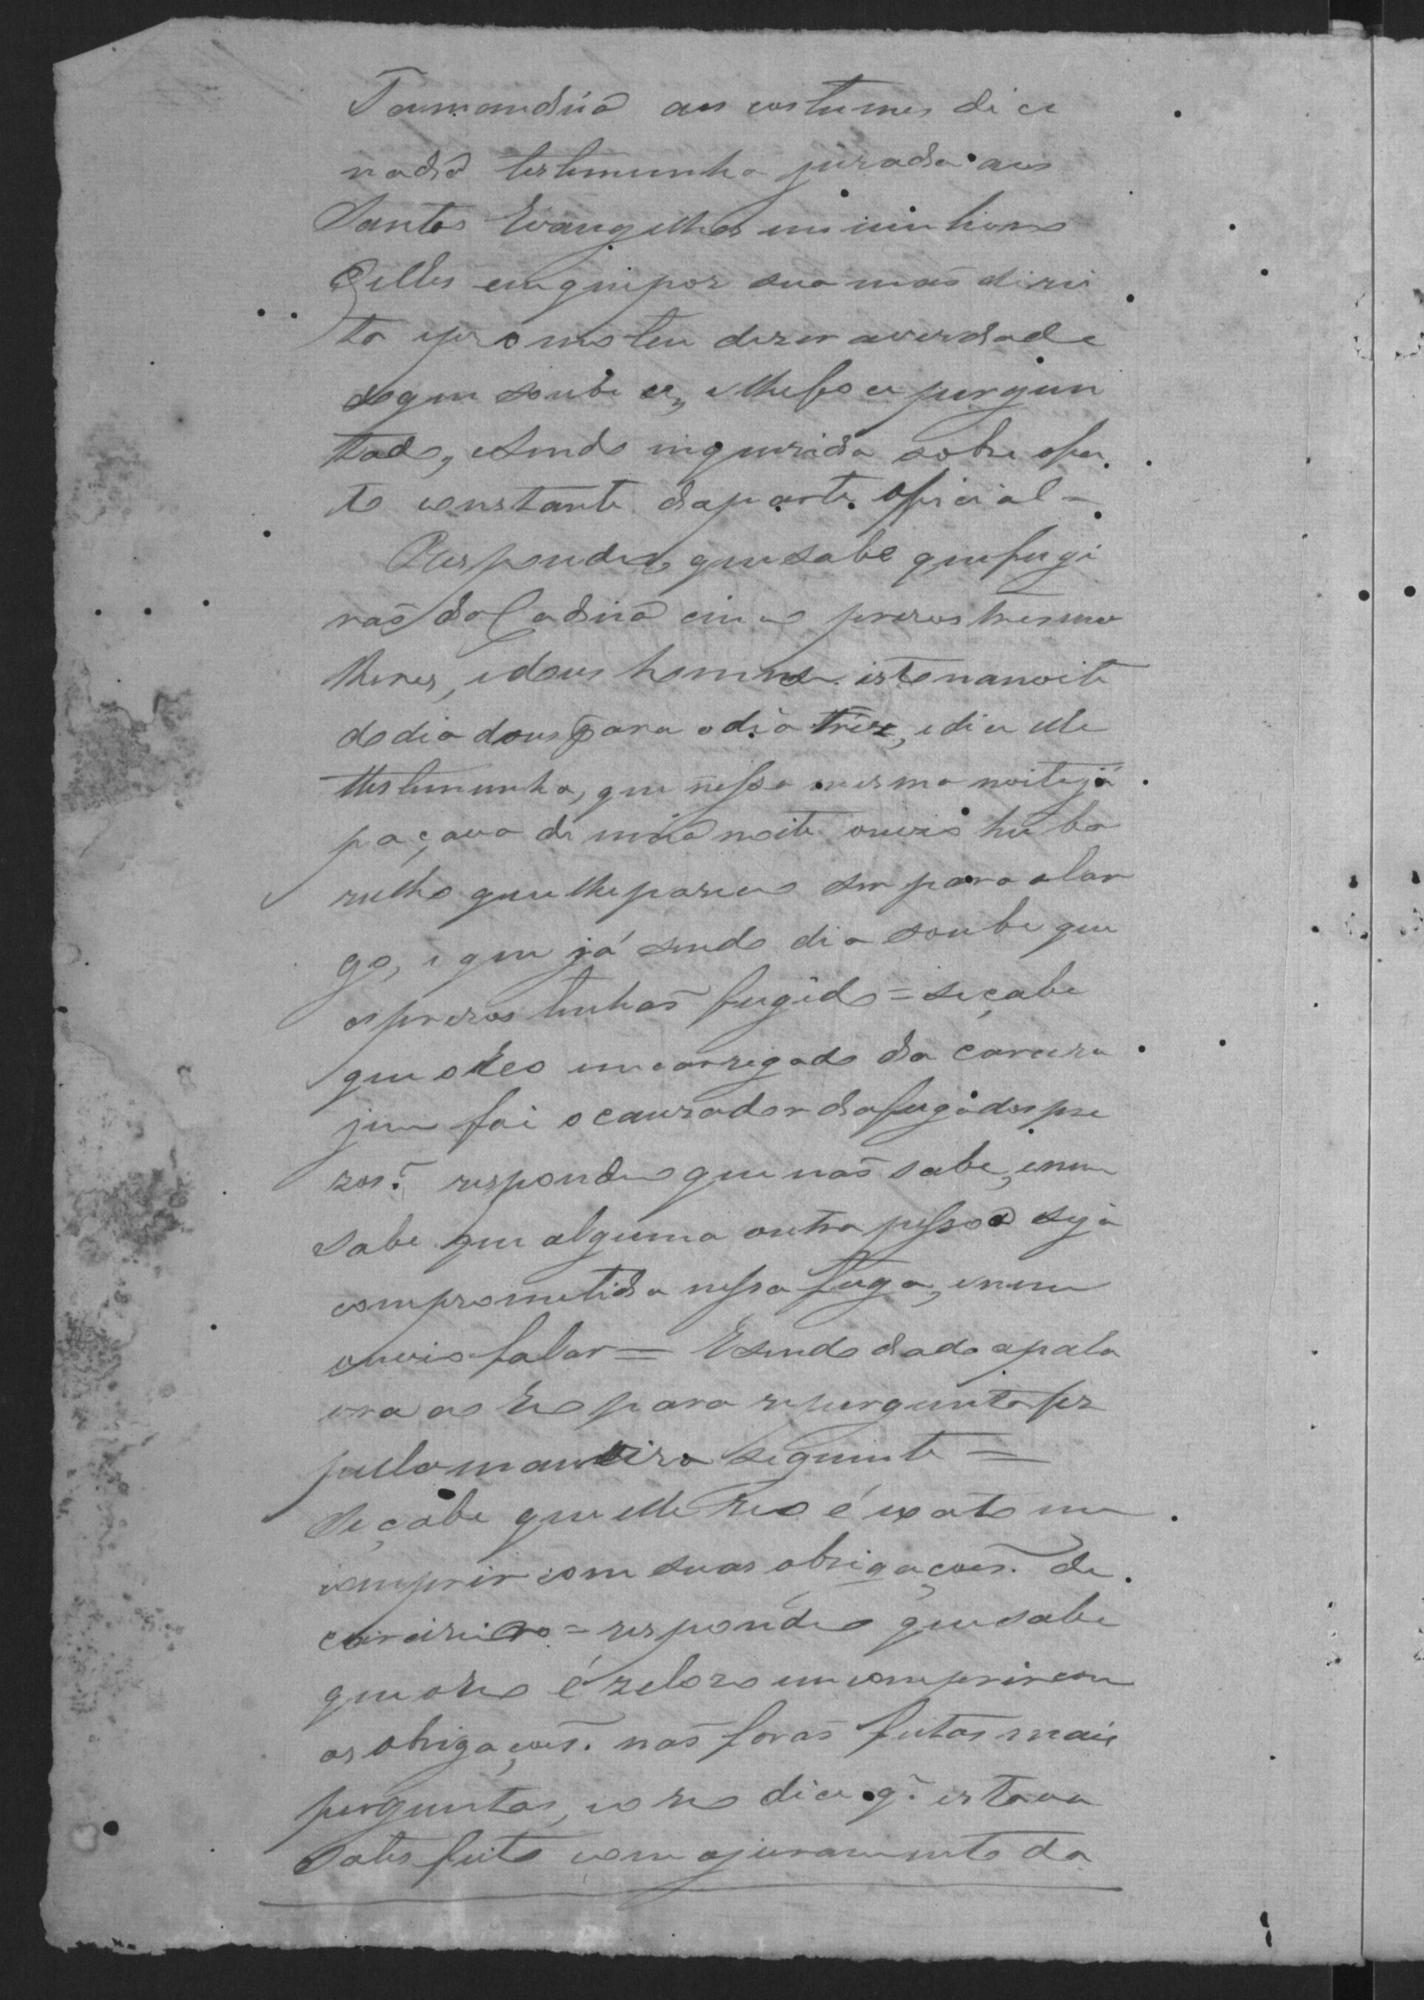 Tamanduá aos costumes dice
nada testemunha jurada aos
Santos Evangelhos em um livro
delles em que poz sua mão direi
ta e prometeu dizer averdade
do que soube ce, e lhe foce pergun
tado, e sendo inquirida sobre ofa
to constante da parte oficial =
Respondeo que sabe que fugi
rão da Cadeia cinco prezos tres mu
lheres, e dous homens isto na noite
do dia dous para o dia três, e dice elle
testemunha, que nessa mesma noite já
paçava de meia noite ouvio hu ba
rulho que lhe pareceo ser para o lar
go, e que já sendo dia soube que
os prezos tinhão fugido = se çabe
que o Reo encarregado da carcera
jem foi o cauzador da fuga dos pre
zos? respondeo que não sabe, e nem
sabe que alguma outra pessoa seja
comprometida nessa fuga, e nem
ouvio falar = E sendo dado a pala
vra ao Reo para repergunta fez
pella maneira seguinte =
Se çabe que elle Reo é exato em
comprir com suas obrigaçoens de
carcireiro = respondeo que sabe
que o Reo é zelozo em comprir com
as obrigaçoens. não forão feitas mais
perguntas, e o reo dice q̃ estava
satesfeito com ajuramento da